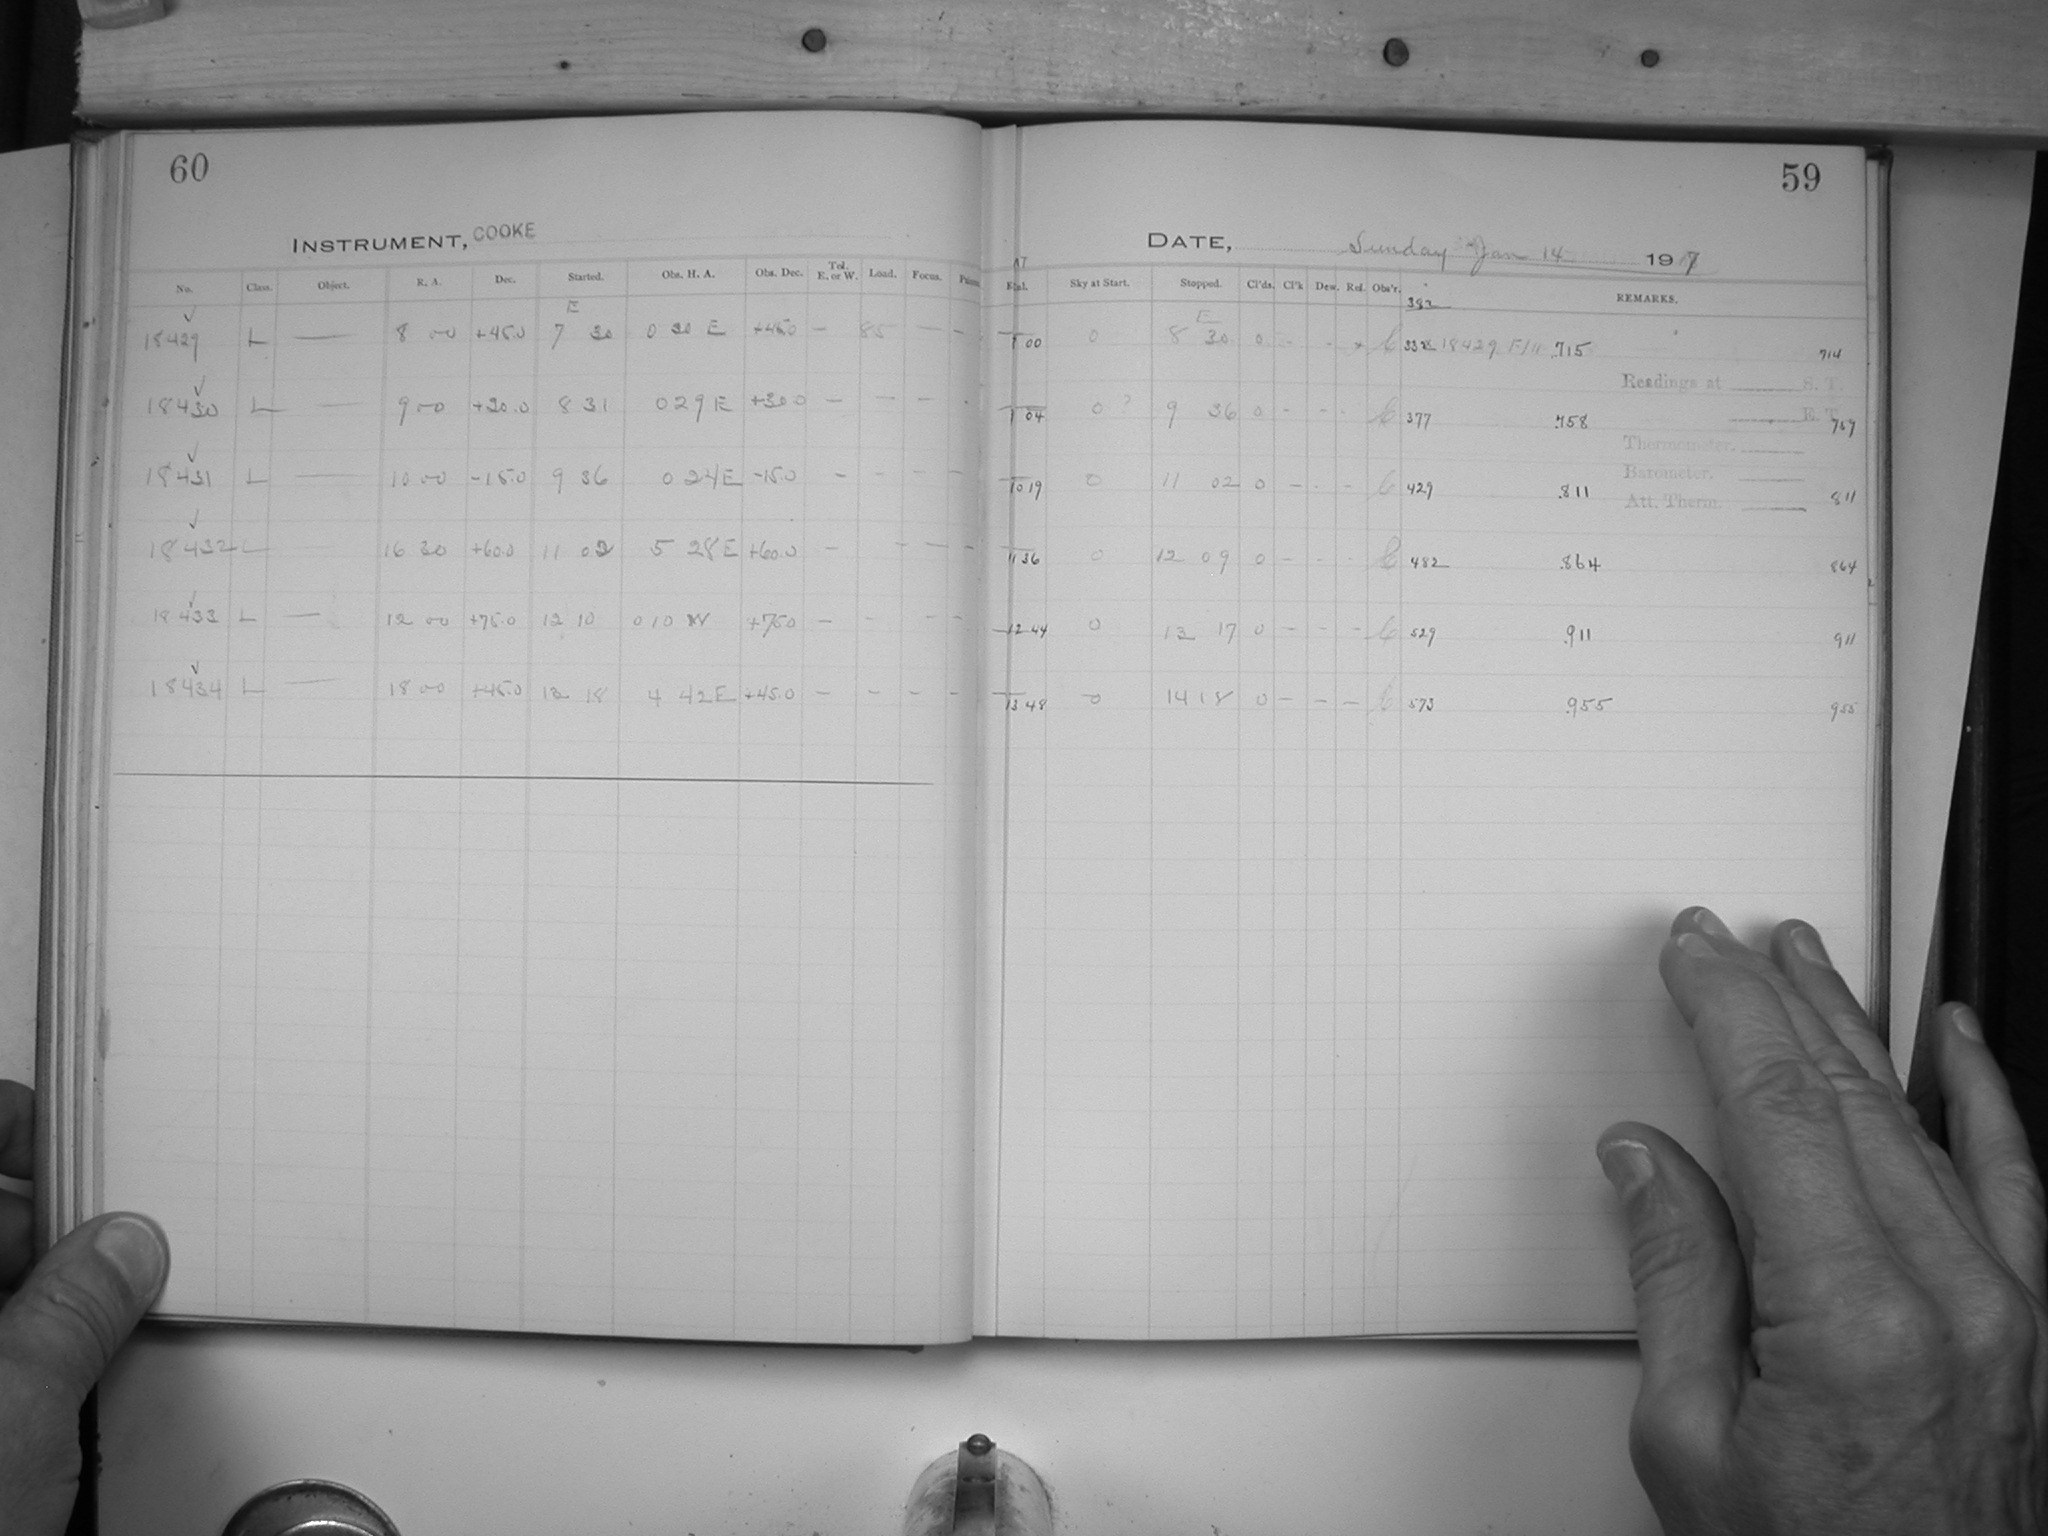 60
INSTRUMENT, COOKE
No. Class. Object. R. A. Dec. Started. Obs. H. A. Obs. Dec. Tel. E. or W. Load. Focus.
E
18429 L — 8 00 +45.0 7 30 0 30 E +45.0 — 85 — —
18430 L — 9 00 +30.0 8 31 0 29 E +30.0 — — —
18431 L — 10 00 -15.0 9 36 0 24 E -15.0 — — — —
18432 L — 16 30 +60.0 11 02 5 28 E +60.0 — — — —
18433 L — 12 00 +75.0 12 10 0 10 W +75.0 — — — —
18434 L — 18 00 +45.0 13 18 4 42 E +45.0 — — — —
59
DATE, Sunday Jan 14 1917
Sky at Start. Stopped. Cl'ds. Cl'k Dew. Rel. Obs'r. REMARKS.
382
E
00 0 8 30 0 - - 18429 .715 714
Readings at S. T.
04 0 ? 9 36 0 - - - 377 .758 759
E. T.
Thermometer.
10 19 0 11 02 0 - - - 429 .811 811
Barometer.
Att. Therm.
11 36 0 12 09 0 - - - 482 .864 864
12 44 0 13 17 0 - - - 529 .911 911
13 48 0 14 18 0 - - - 573 .955 955